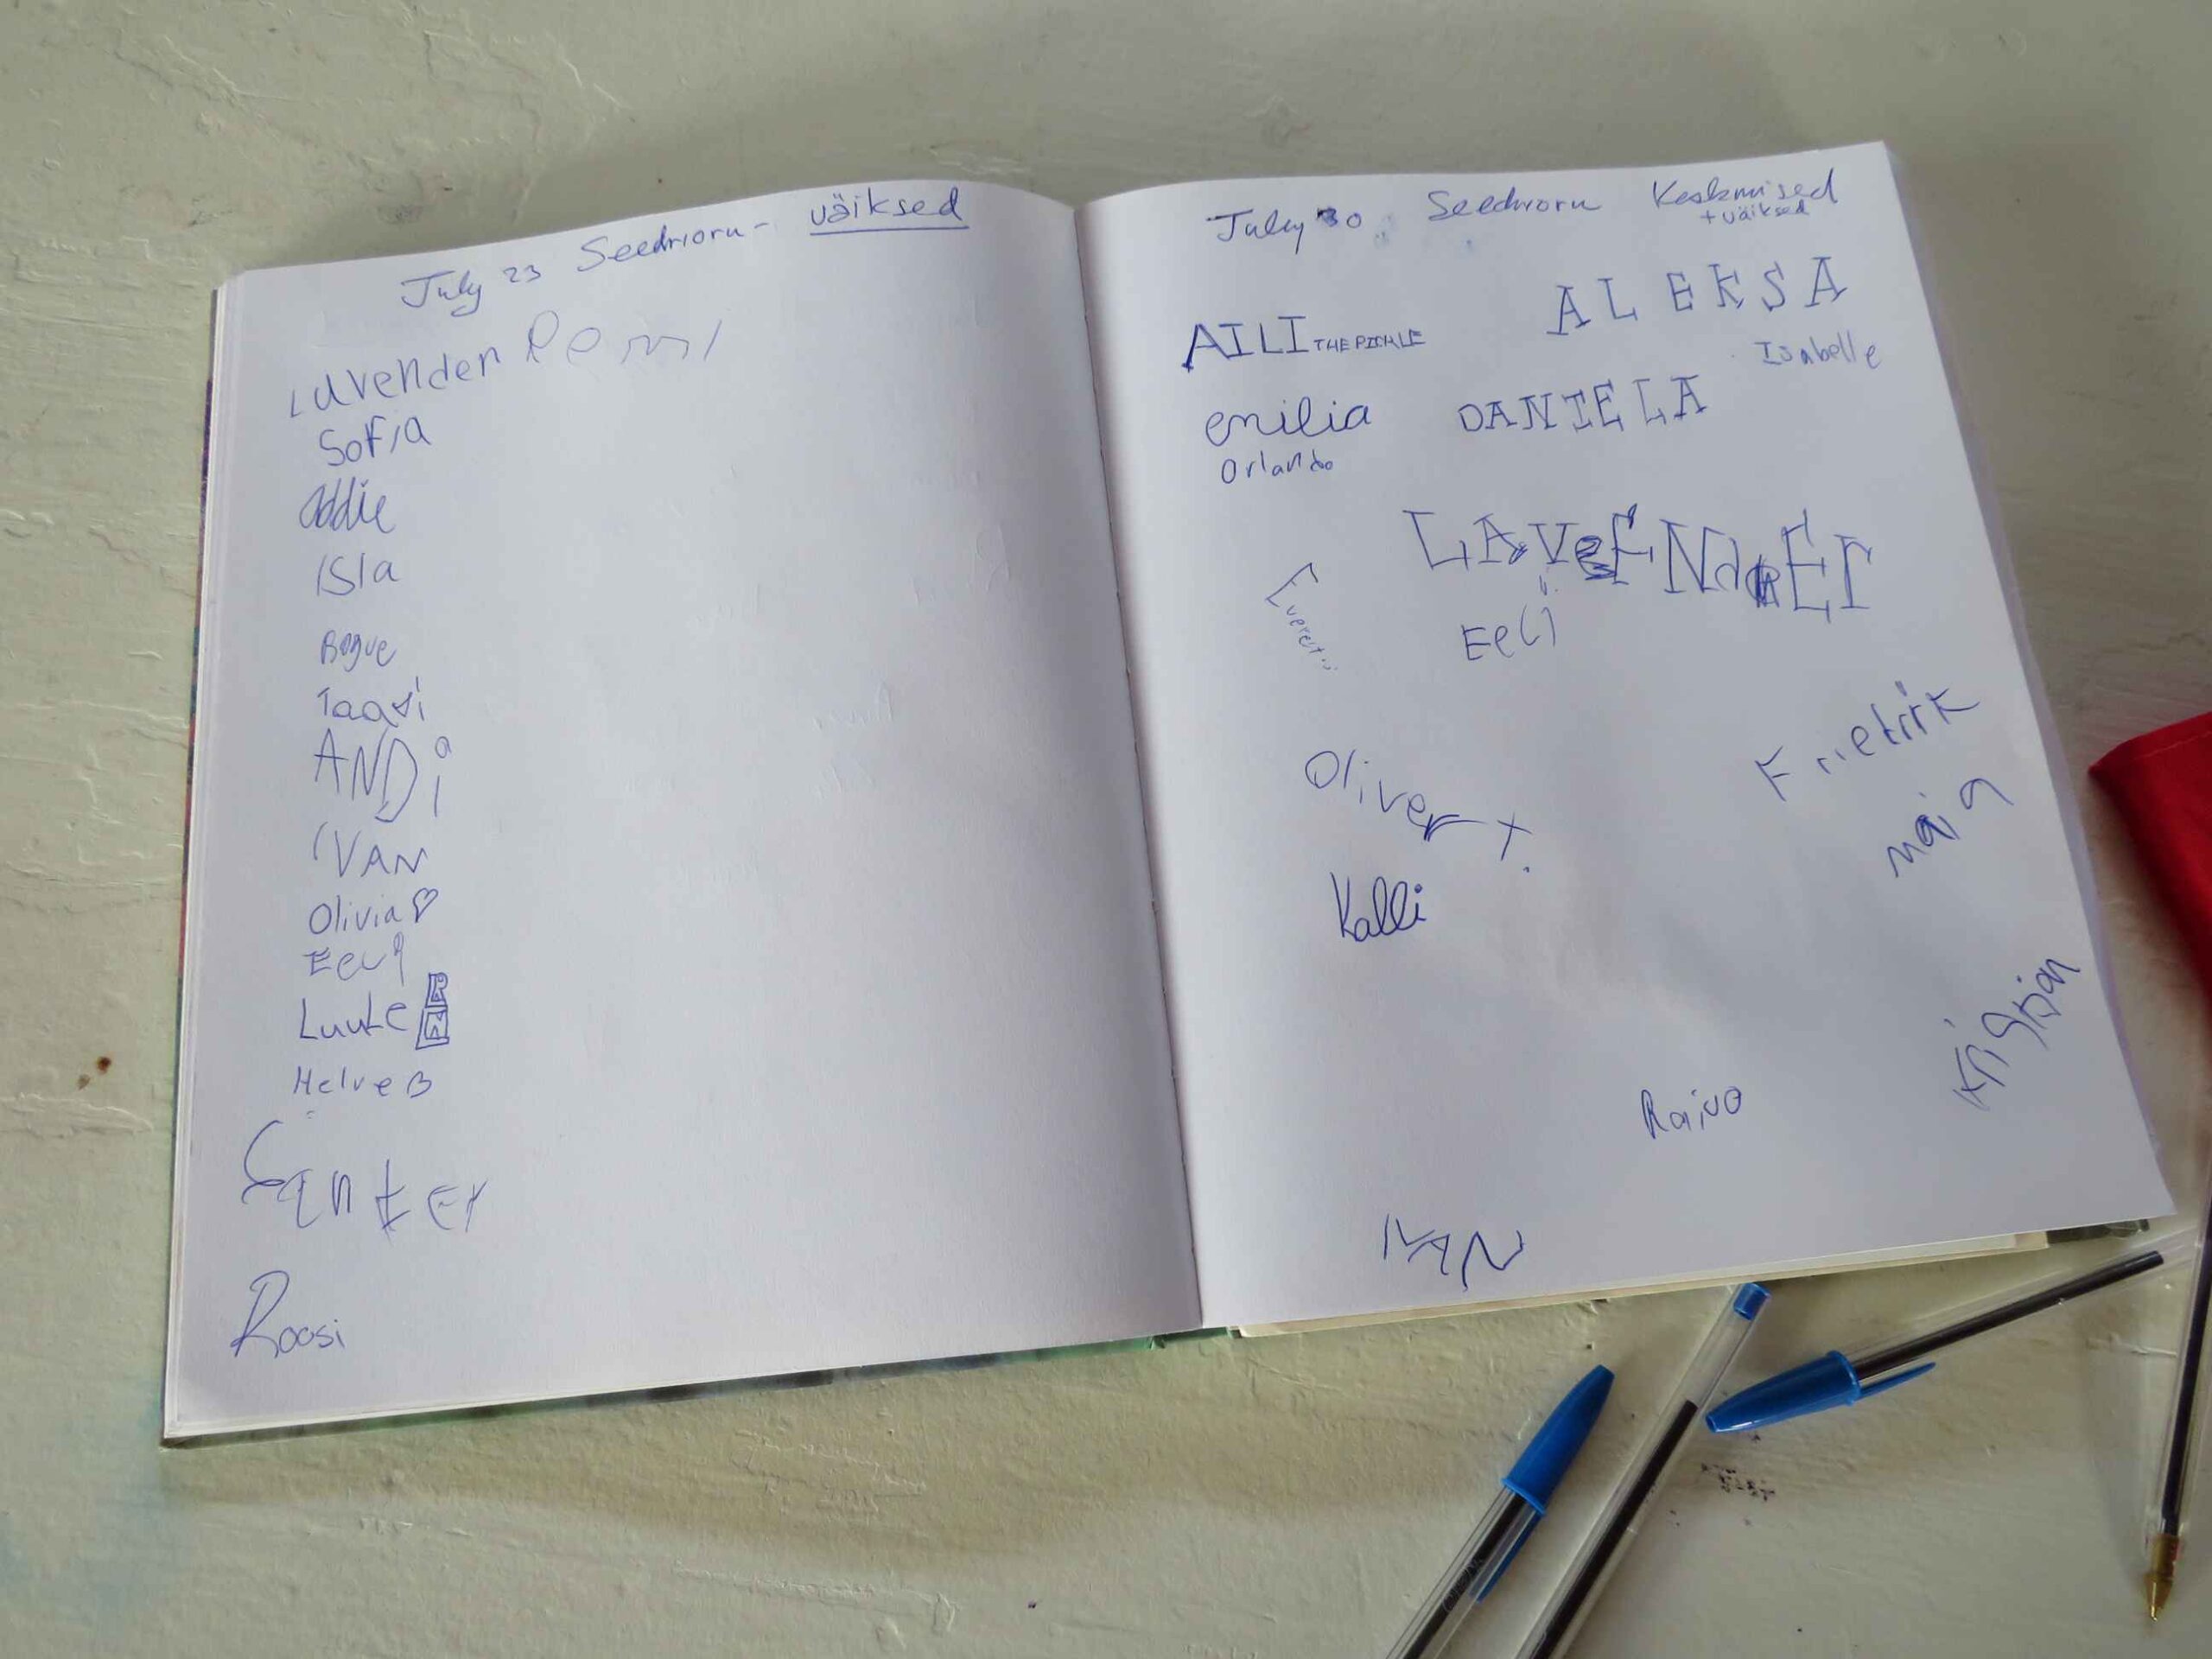 July 23 Seedrioru - väiksed
Lavender Remi
Sofia
Addie
Isla
Taavi
ANDi
IVAN
Olivia
Luuke
Helve B
Roosi
July 30 Seedrioru Keskmised
+ väiksed
AILI THE PICKLE
ALEKSA
Isabelle
emilia
DANIELA
Orlando
LAVENdEr
Everest
Eeli
Oliver T.
Frietrik
maia
Kalli
Kristjan
Raivo
IVAN